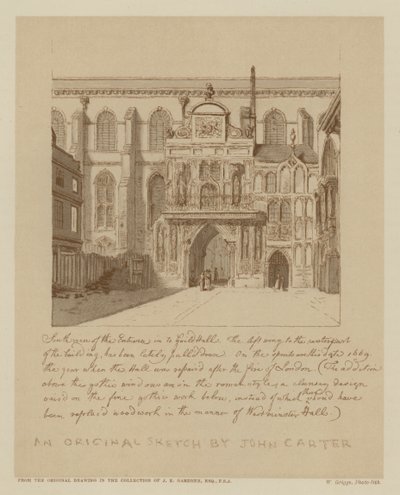 South view of the Entrance in to Guild Hall. The left wing to the centre part
of the building, has been lately pulled down. On the spouts are this date 1669.
the year when the Hall was repaired after the fire of London (The addition
above the gothic windows are in the roman style is a clumsey design
on the fine gothic work below, instead of which there should have
been replac'd woodwork in the manner of Westminster Hall.)
AN ORIGINAL SKETCH BY JOHN CARTER
FROM THE ORIGINAL DRAWING IN THE COLLECTION OF J. E. GARDNER, ESQ., F.S.A.
W. Griggs, Photo-lith.